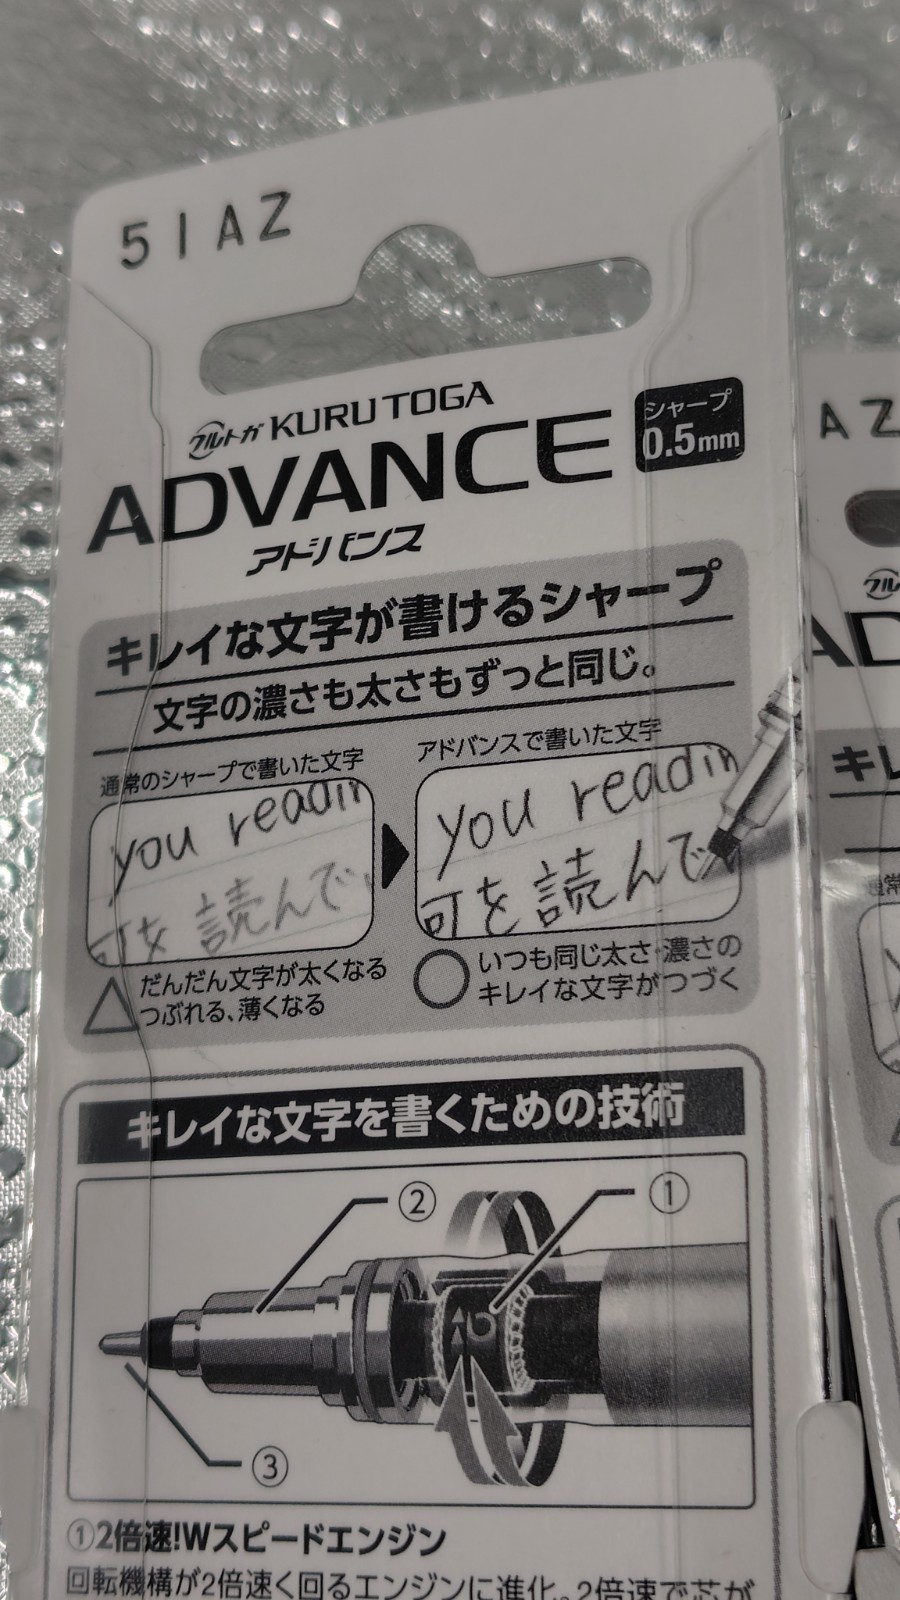 51AZ
クルトガ KURU TOGA
ADVANCE
シャープ
0.5mm
アドバンス
キレイな文字が書けるシャープ
文字の濃さも太さもずっと同じ。
通常のシャープで書いた文字
you readin
可を読んで
だんだん文字が太くなる
つぶれる、薄くなる
アドバンスで書いた文字
you readin
可を読んで
いつも同じ太さ・濃さの
キレイな文字がつづく
キレイな文字を書くための技術
②
①
③
①2倍速!Wスピードエンジン
回転機構が2倍速く回るエンジンに進化。2倍速で芯が
AZ
クル
AD
キレ
通常